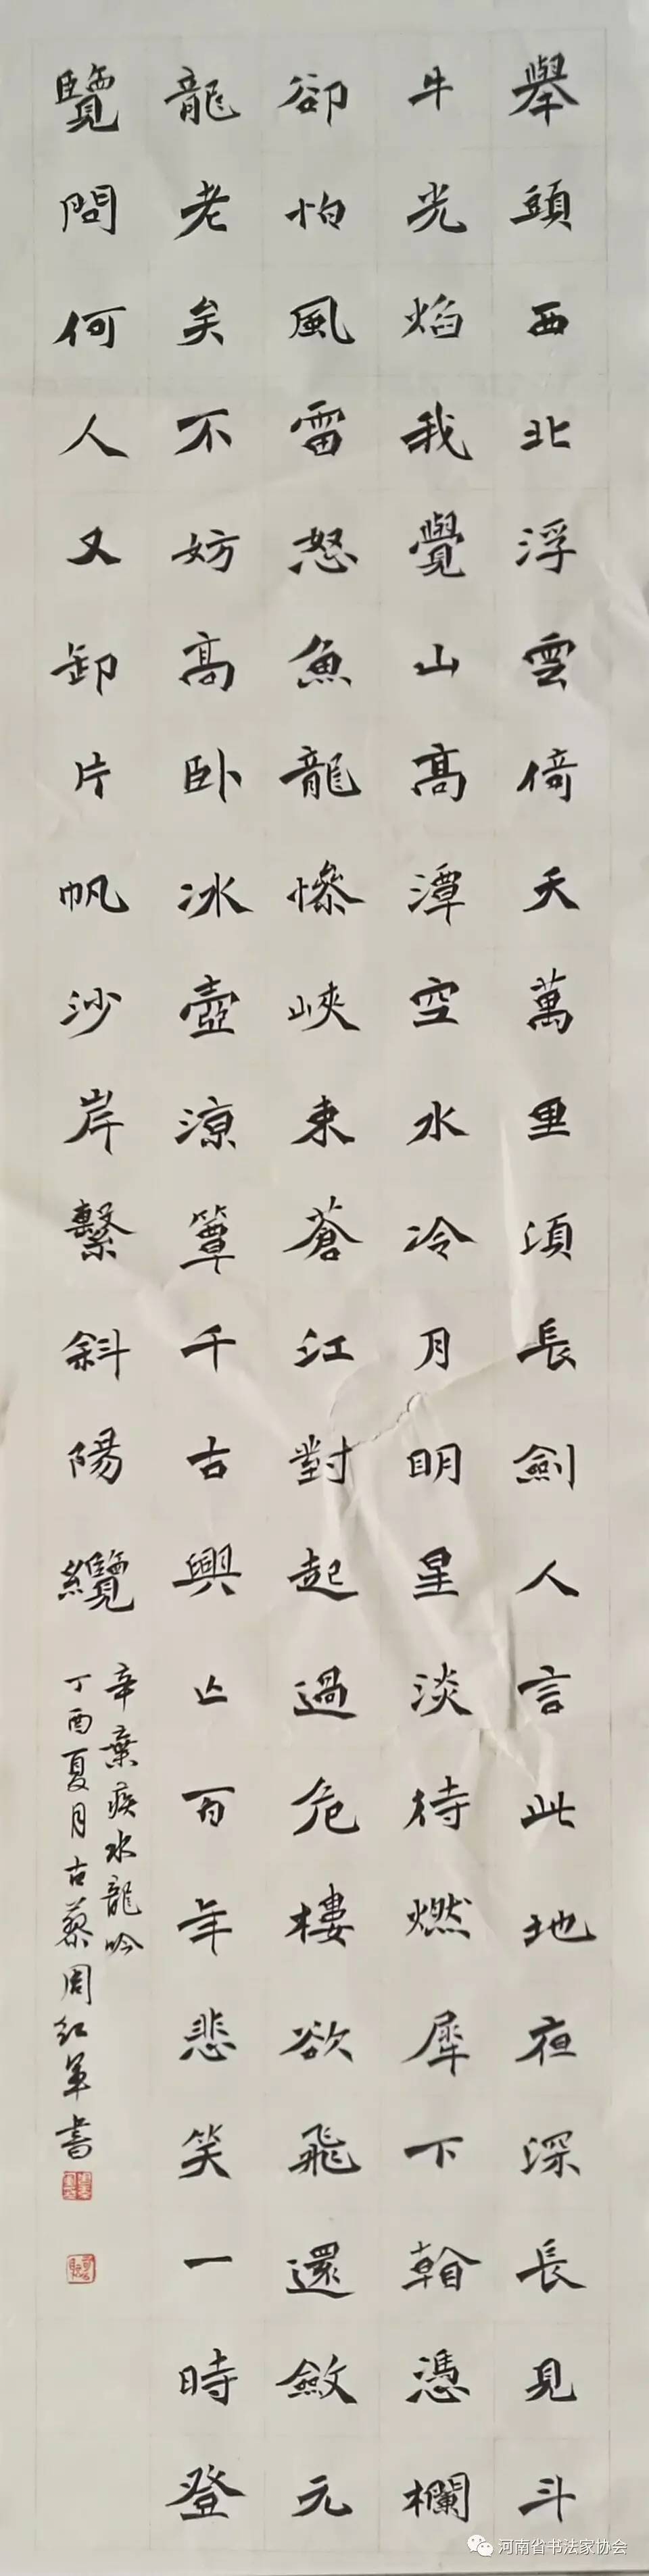 舉頭西北浮雲倚天萬里須長劍人言此地夜深長見斗
牛光焰我覺山高潭空水冷月明星淡待燃犀下翰憑欄
卻怕風雷怒魚龍慘峽束蒼江對起過危樓欲飛還斂元
龍老矣不妨高臥冰壺涼簟千古興亡百年悲笑一時登
覽問何人又卸片帆沙岸繫斜陽纜
辛棄疾水龍吟
丁酉夏月古蔡周紅軍書
河南省书法家协会